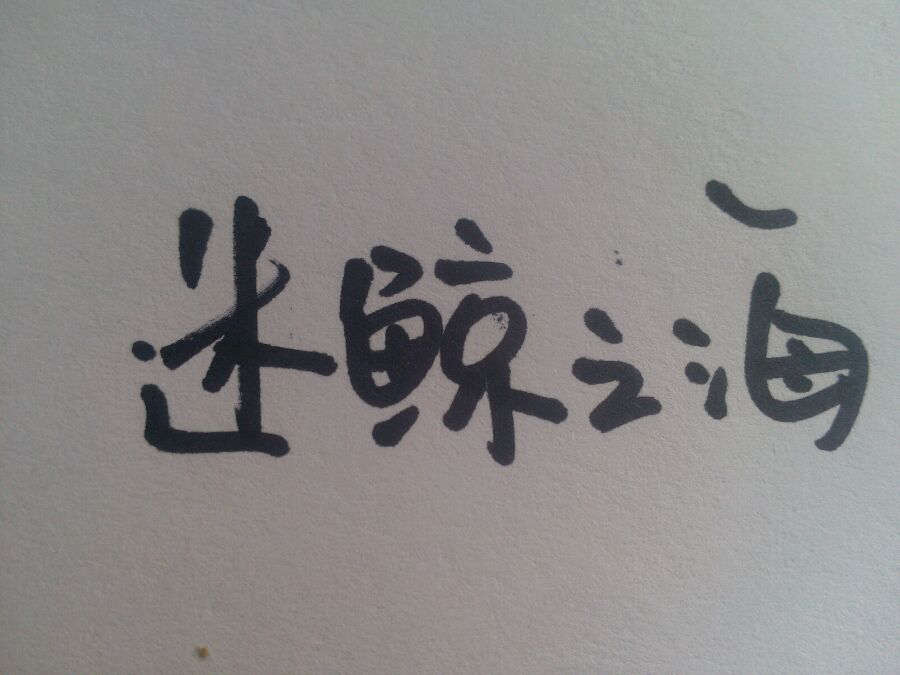 迷鲸之海